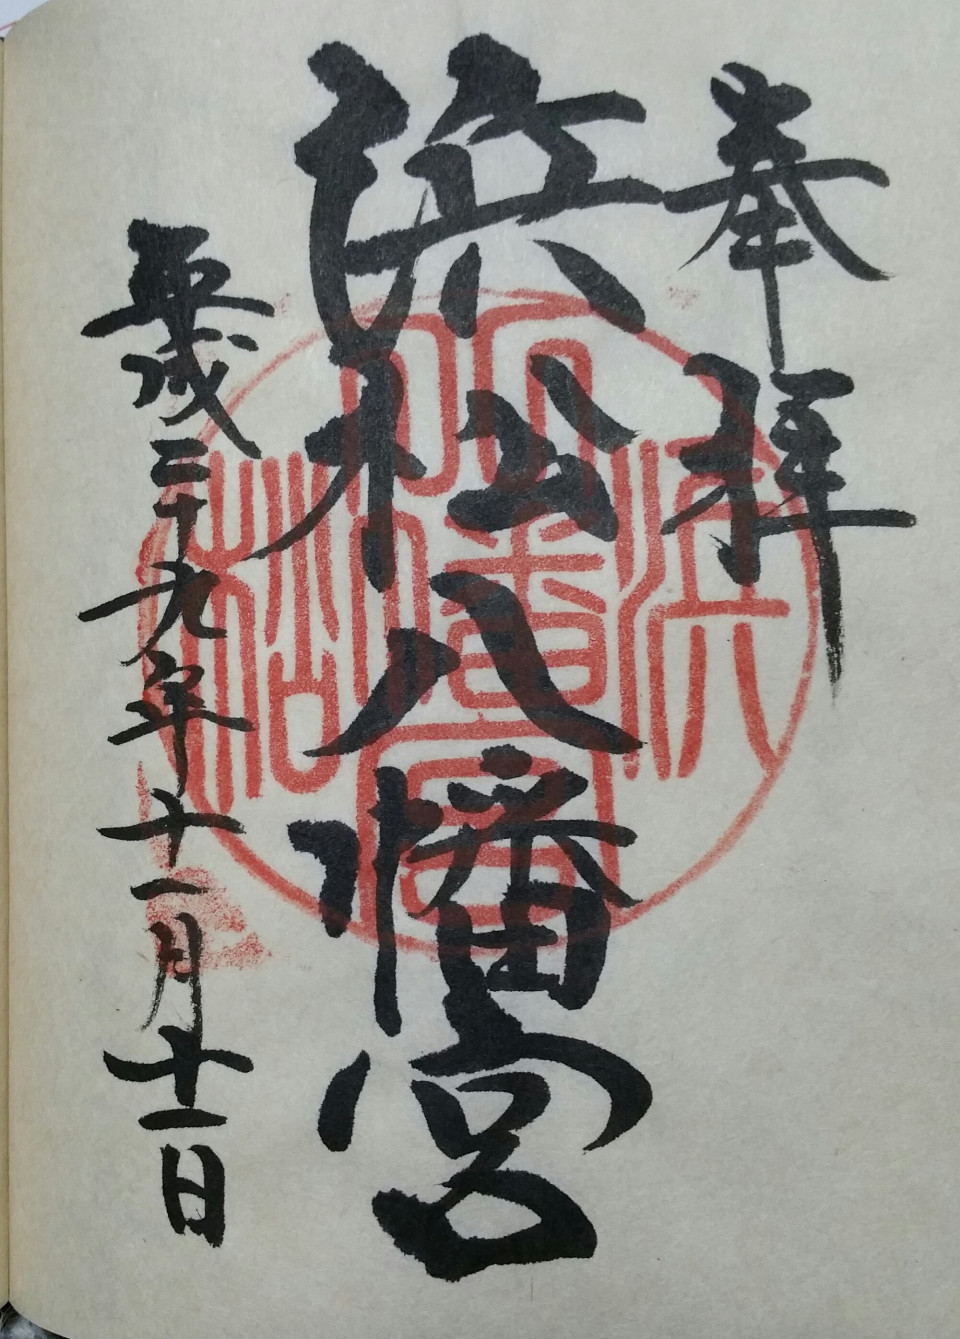 奉拝
浜松八幡宮
平成二十九年十一月十一日
浜松
八幡宮